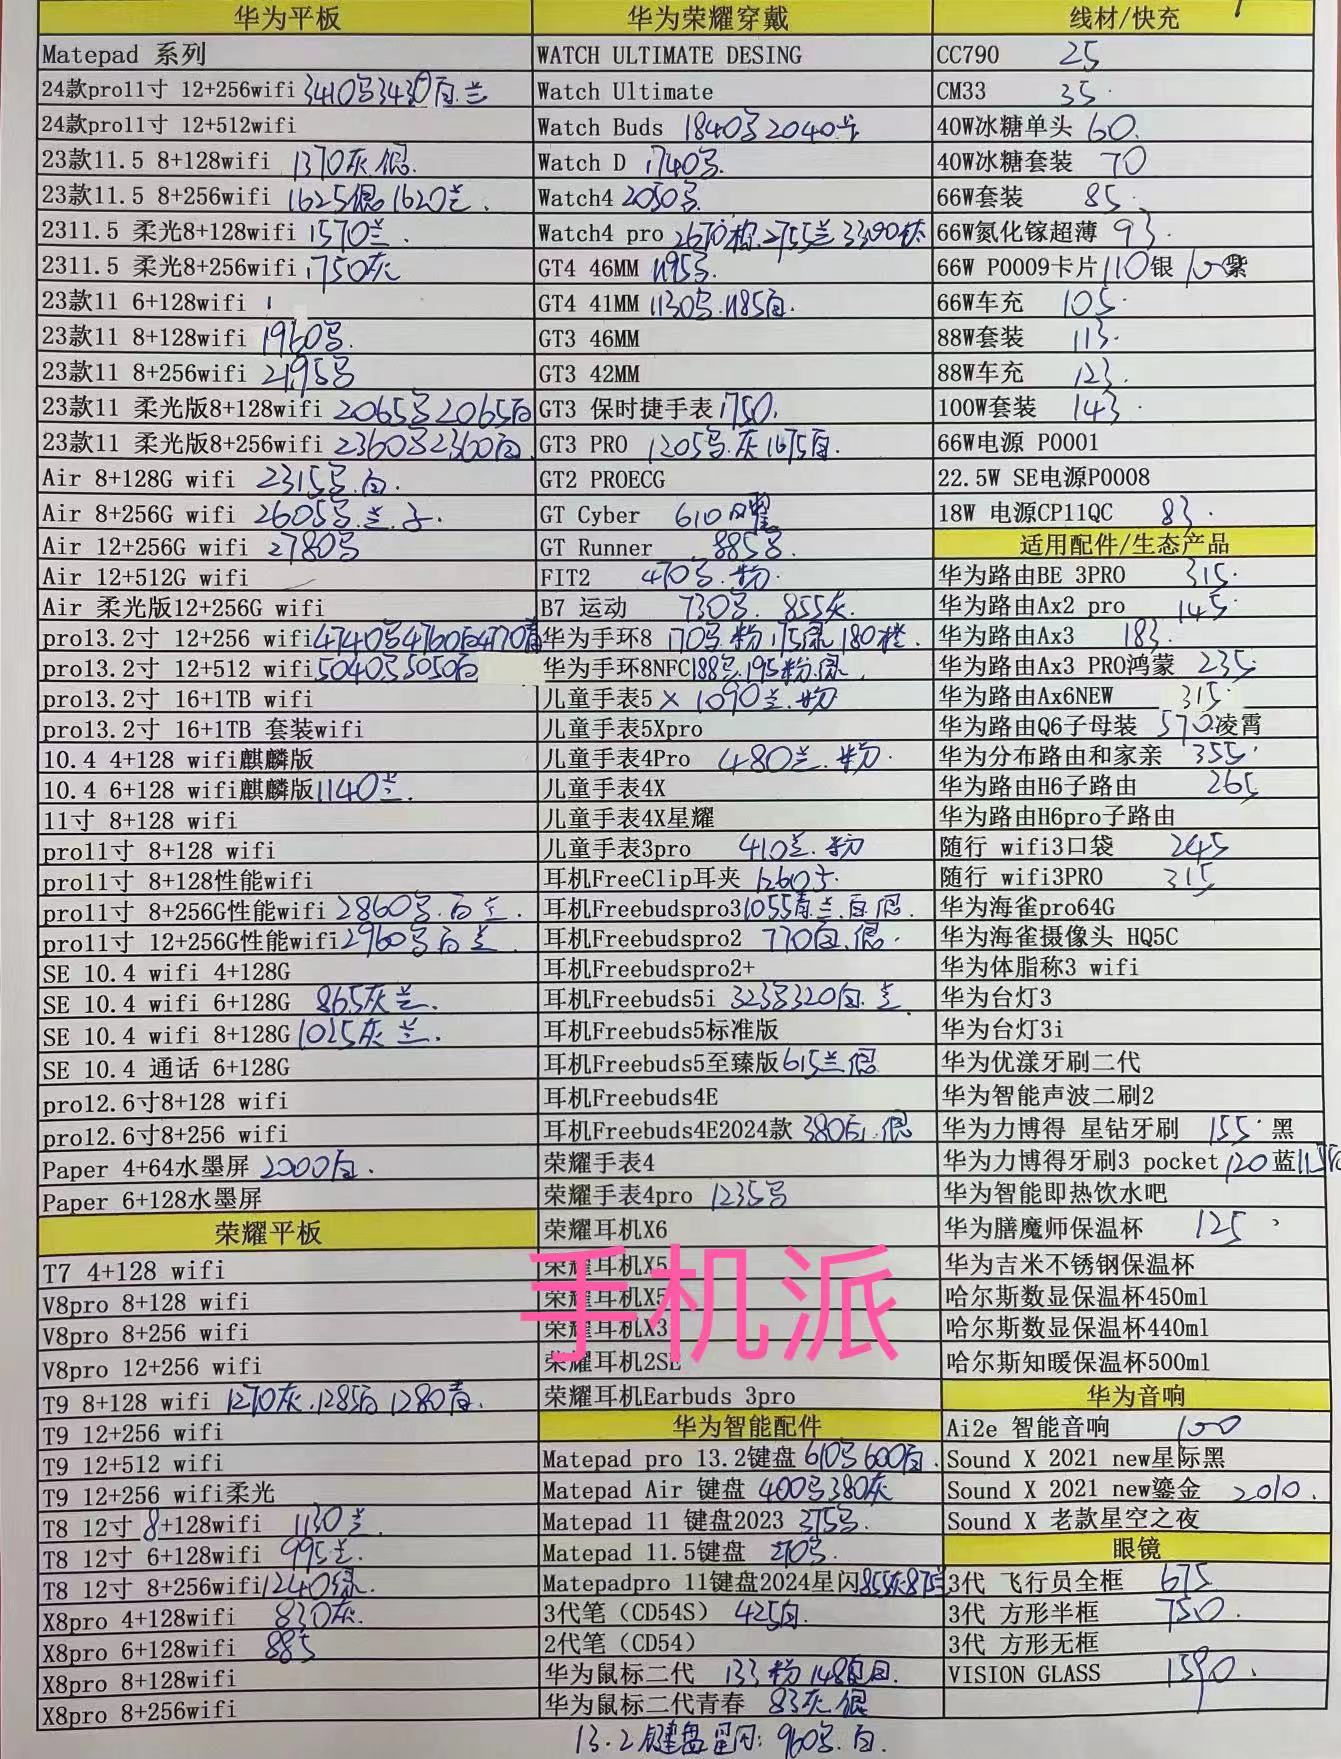 华为平板
Matepad 系列
24款pro11寸 12+256wifi 3410 3430白.兰
24款pro11寸 12+512wifi
23款11.5 8+128wifi 1370灰.银.
23款11.5 8+256wifi 1625银 1620兰.
2311.5 柔光8+128wifi 1570兰.
2311.5 柔光8+256wifi 1750灰
23款11 6+128wifi
23款11 8+128wifi 1960
23款11 8+256wifi 2195
23款11 柔光版8+128wifi 2065 2065白
23款11 柔光版8+256wifi 2360 2360白
Air 8+128G wifi 2315 白.
Air 8+256G wifi 2605 兰.
Air 12+256G wifi 2780
Air 12+512G wifi
Air 柔光版12+256G wifi
pro13.2寸 12+256 wifi 4740 4760白 4770青
pro13.2寸 12+512 wifi 5040 5050白
pro13.2寸 16+1TB wifi
pro13.2寸 16+1TB 套装wifi
10.4 4+128 wifi麒麟版
10.4 6+128 wifi麒麟版 1140兰.
11寸 8+128 wifi
pro11寸 8+128 wifi
pro11寸 8+128性能wifi
pro11寸 8+256G性能wifi 2860 白 兰.
pro11寸 12+256G性能wifi 2960 白 兰.
SE 10.4 wifi 4+128G
SE 10.4 wifi 6+128G 865灰 兰.
SE 10.4 wifi 8+128G 1025灰 兰.
SE 10.4 通话 6+128G
pro12.6寸8+128 wifi
pro12.6寸8+256 wifi
Paper 4+64水墨屏 2000白.
Paper 6+128水墨屏
荣耀平板
T7 4+128 wifi
V8pro 8+128 wifi
V8pro 8+256 wifi
V8pro 12+256 wifi
T9 8+128 wifi 1270灰.1285白 1280青.
T9 12+256 wifi
T9 12+512 wifi
T9 12+256 wifi柔光
T8 12寸 8+128wifi 1130兰.
T8 12寸 6+128wifi 995兰.
T8 12寸 8+256wifi 1240绿.
X8pro 4+128wifi 830灰.
X8pro 6+128wifi 885
X8pro 8+128wifi
X8pro 8+256wifi
华为荣耀穿戴
WATCH ULTIMATE DESING
Watch Ultimate
Watch Buds 1840 2040
Watch D 1740
Watch4 2050
Watch4 pro 2670 2755兰 3390钛
GT4 46MM 1195
GT4 41MM 1130 1185白.
GT3 46MM
GT3 42MM
GT3 保时捷手表 1750.
GT3 PRO 1205 灰 1675白.
GT2 PROECG
GT Cyber 610
GT Runner 885
FIT2 470 粉.
B7 运动 730 855灰.
华为手环8 170 粉 175绿 180橙.
华为手环8NFC 188 195粉.绿.
儿童手表5 X 1090兰.粉
儿童手表5Xpro
儿童手表4Pro 480兰.粉.
儿童手表4X
儿童手表4X星耀
儿童手表3pro 410兰.粉
耳机FreeClip耳夹 1260
耳机Freebudspro3 1055青.兰.白.银.
耳机Freebudspro2 770白.银.
耳机Freebudspro2+
耳机Freebuds5i 323 320白.兰.
耳机Freebuds5标准版
耳机Freebuds5至臻版 615兰 银
耳机Freebuds4E
耳机Freebuds4E2024款 380白.银
荣耀手表4
荣耀手表4pro 1235
荣耀耳机X6
荣耀耳机X5
荣耀耳机X5
荣耀耳机X3
荣耀耳机2SE
手机派
荣耀耳机Earbuds 3pro
华为智能配件
Matepad pro 13.2键盘 610 600白.
Matepad Air 键盘 400 380灰
Matepad 11 键盘2023 375
Matepad 11.5键盘 270
Matepadpro 11键盘2024星闪 855灰 875
3代笔（CD54S） 425白.
2代笔（CD54）
华为鼠标二代 133粉 148 白.
华为鼠标二代青春 83灰.银
13.2键盘 960 白.
线材/快充
CC790 25
CM33 35.
40W冰糖单头 60.
40W冰糖套装 70
66W套装 85.
66W氮化镓超薄 93.
66W P0009卡片 110银 紫
66W车充 105.
88W套装 113.
88W车充 123.
100W套装 143.
66W电源 P0001
22.5W SE电源P0008
18W 电源CP11QC 83.
适用配件/生态产品
华为路由BE 3PRO 315.
华为路由Ax2 pro 145.
华为路由Ax3 183.
华为路由Ax3 PRO鸿蒙 235.
华为路由Ax6NEW 315.
华为路由Q6子母装 570.凌霄
华为分布路由和家亲 355.
华为路由H6子路由 265
华为路由H6pro子路由
随行 wifi3口袋 245
随行 wifi3PRO 315
华为海雀pro64G
华为海雀摄像头 HQ5C
华为体脂称3 wifi
华为台灯3
华为台灯3i
华为优漾牙刷二代
华为智能声波二刷2
华为力博得 星钻牙刷 155.黑
华为力博得牙刷3 pocket 120蓝
华为智能即热饮水吧
华为膳魔师保温杯 125
华为吉米不锈钢保温杯
哈尔斯数显保温杯450ml
哈尔斯数显保温杯440ml
哈尔斯知暖保温杯500ml
华为音响
Ai2e 智能音响 100
Sound X 2021 new星际黑
Sound X 2021 new鎏金 2010.
Sound X 老款星空之夜
眼镜
3代 飞行员全框 675
3代 方形半框 750.
3代 方形无框
VISION GLASS 1590.